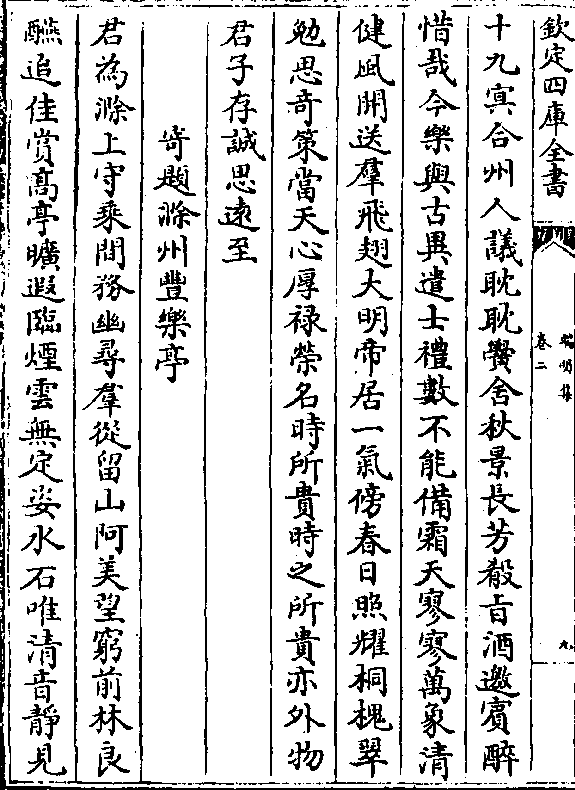 欽定四庫全書
端明集
卷二
九
十九寘合州人議耽耽黌舍秋景長芳殽旨酒邀賓醉
惜哉今樂與古異遣士禮數不能備霜天寥寥萬象清
健風開送羣飛翅大明帝居一氣傍春日照耀桐槐翠
勉思奇策當天心厚祿榮名時所貴時之所貴亦外物
君子存誠思遠至
寄題滁州豐樂亭
君為滁上守乘閒務幽尋羣從留山阿美望窮前林良
醼追佳賞高亭曠遐臨煙雲無定姿水石唯清音靜見